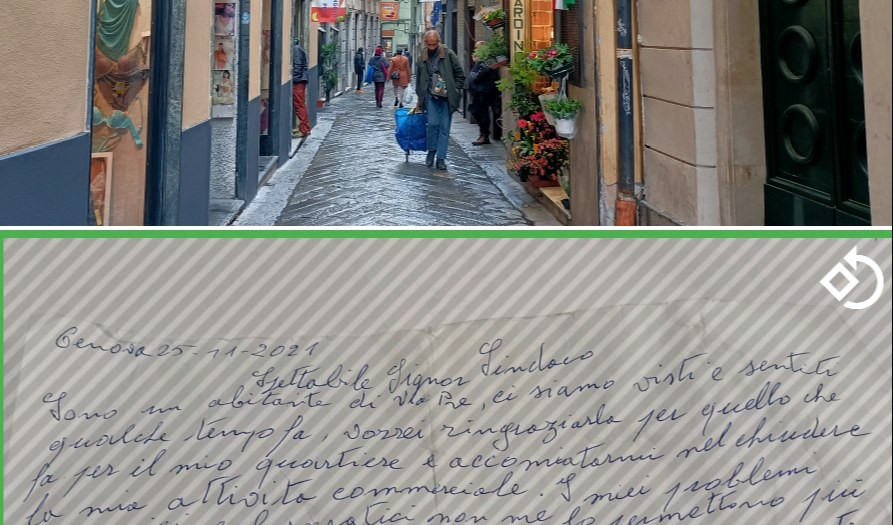 ARDIN
Genova 25-11-2021
Spettabile Signor Sindaco
Sono un abitante di Via Prè, ci siamo visti e sentiti
qualche tempo fa, vorrei ringraziarla per quello che
fa per il mio quartiere e accomiatarmi nel chiudere
la mia attività commerciale. I miei problemi
non me lo permettono più